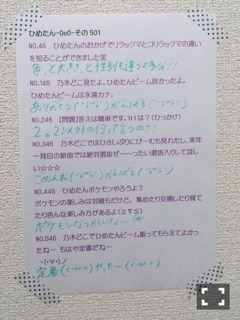 ひめたん-OωO-その501
NO.46 ひめたんのおかげでリラックマとコリラックマの違い
を知ることができました笑
色、と大きさ、と性別も違うよ多分!!
NO.146 乃木どこ見たよ。ひめたんビーム良かったよ。
ひめたんビームは永遠カナ。
ありがとう がんばる
NO.246 【問題】答えは簡単です。1+1は?(ひっかけ)
2。2以外の何って言うのさ!
NO.346 乃木どこではひさしぶりにげーむも見れたし、来年
一発目の新曲では絶対選抜ぜ〜〜ったい選抜入りしてほし
い☆☆☆
ごめんね がんばる
NO.446 ひめたんポケモンやろうよ?
ポケモンの楽しみは対戦もだけど、集めたり交換したり育て
たり色んな楽しみ方があるよ(≧∇≦)
ポケモンなつかしいな〜
NO.546 乃木どこでひめたんビーム振ってもらえてよかっ
たねー もはや定番だねー
定番 やったー